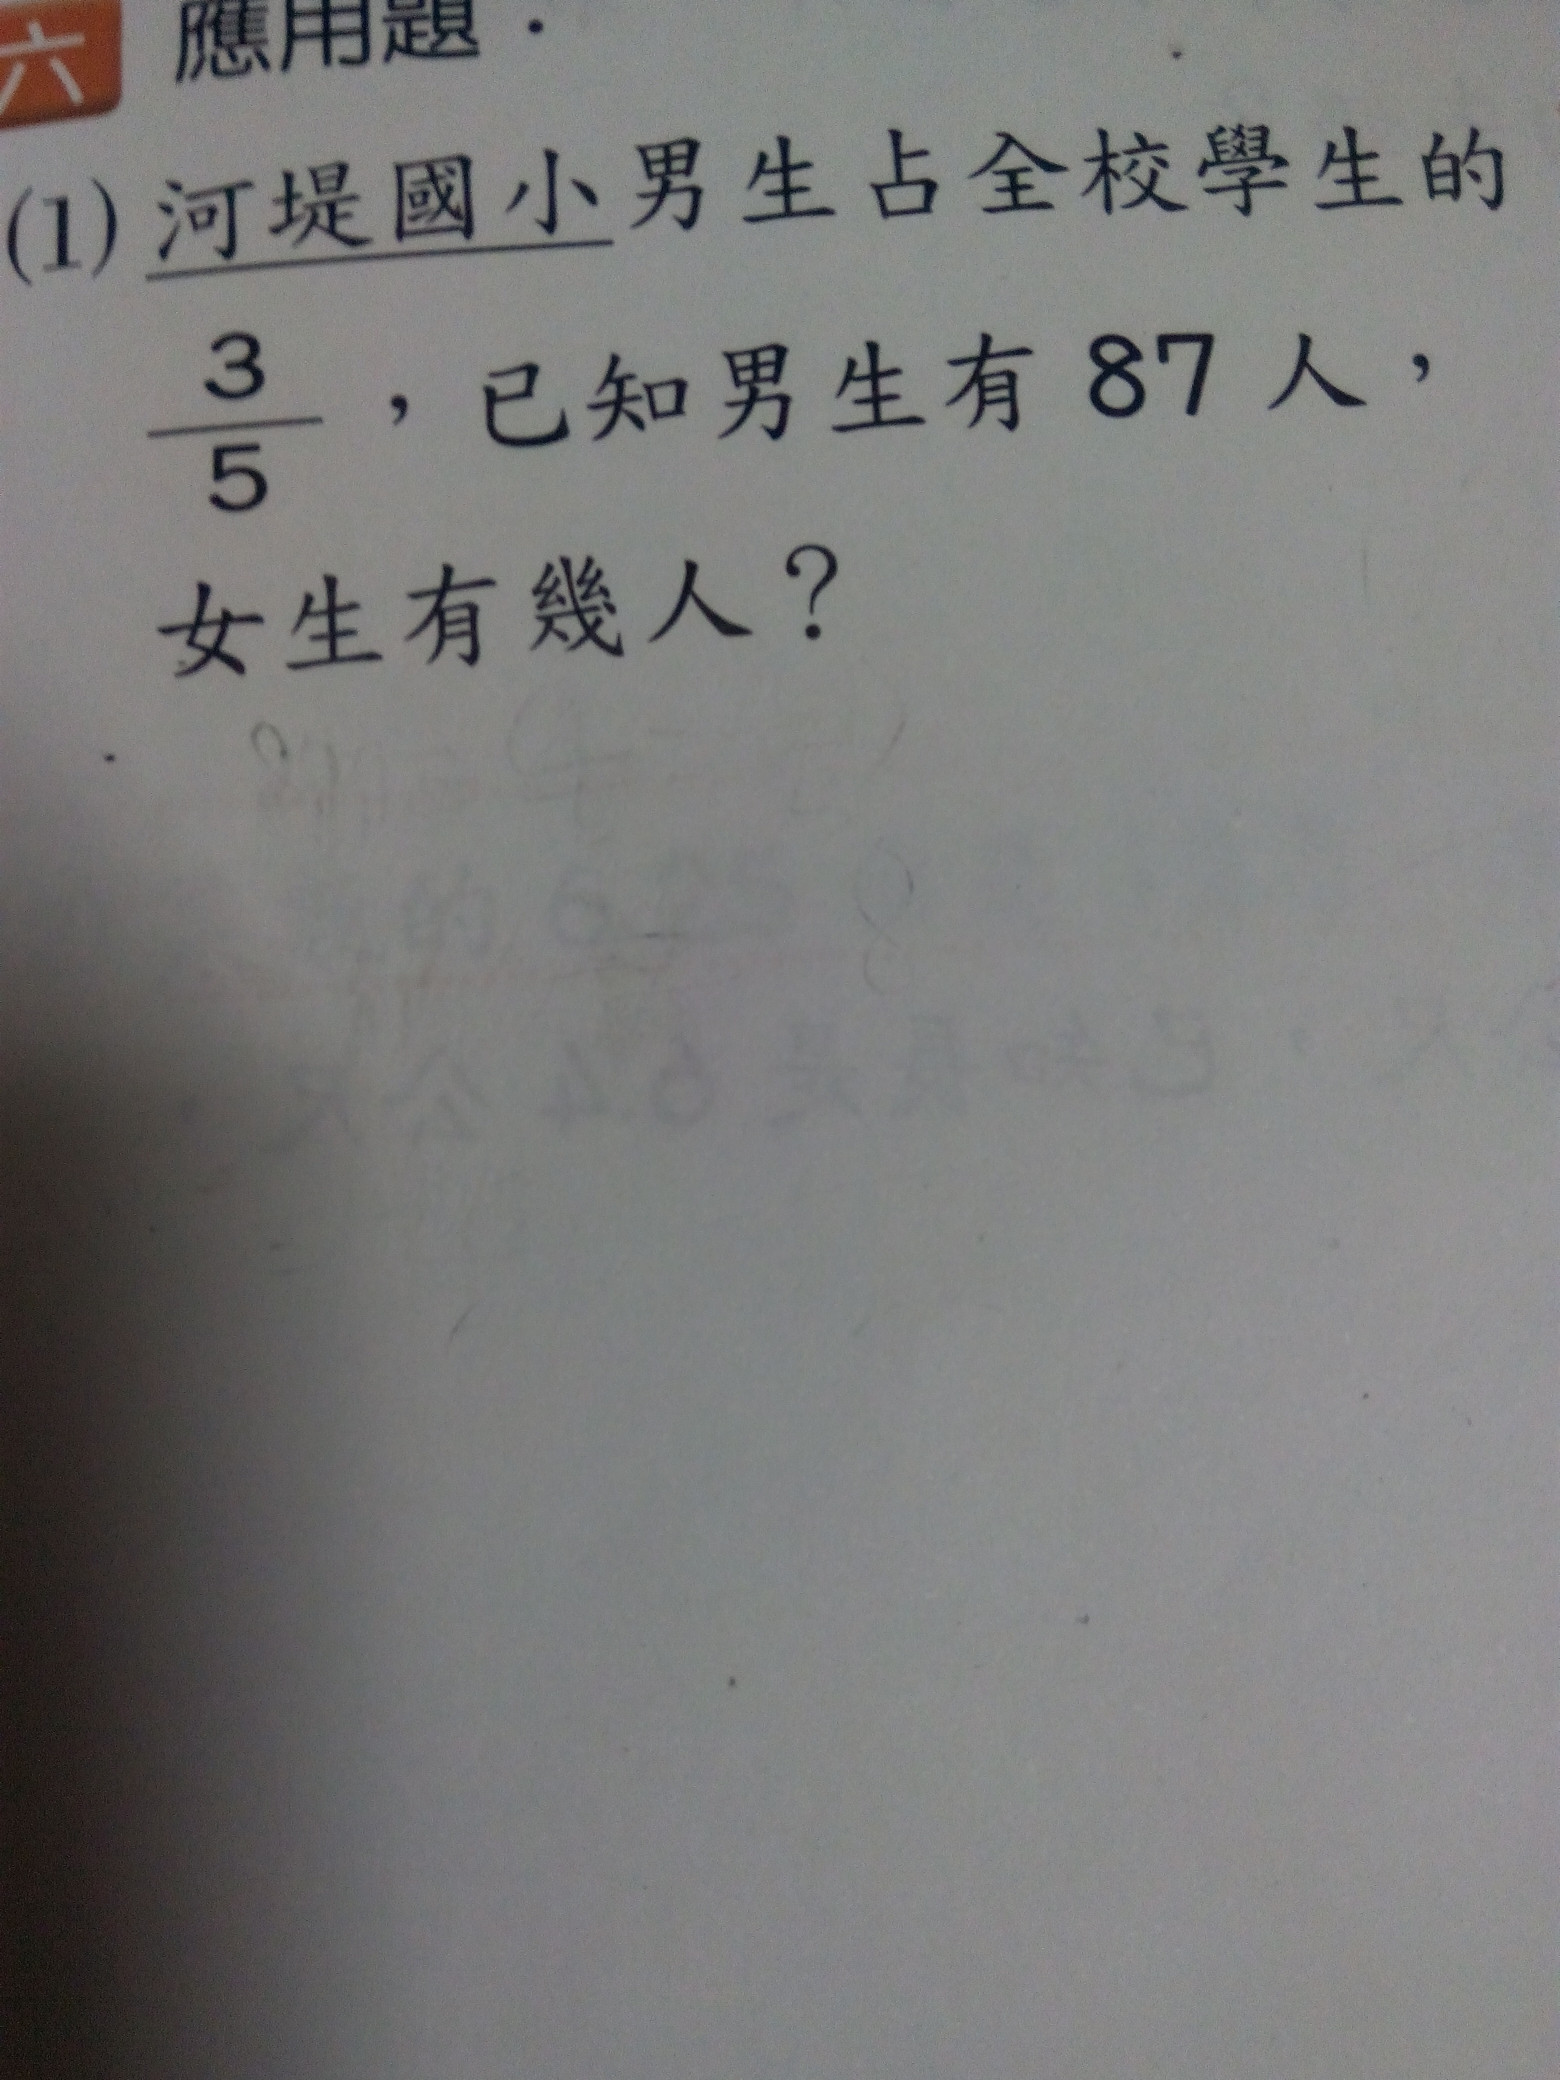 六 應用題：
(1) 河堤國小男生占全校學生的
3/5，已知男生有87人，
女生有幾人？
已知長是64公尺，